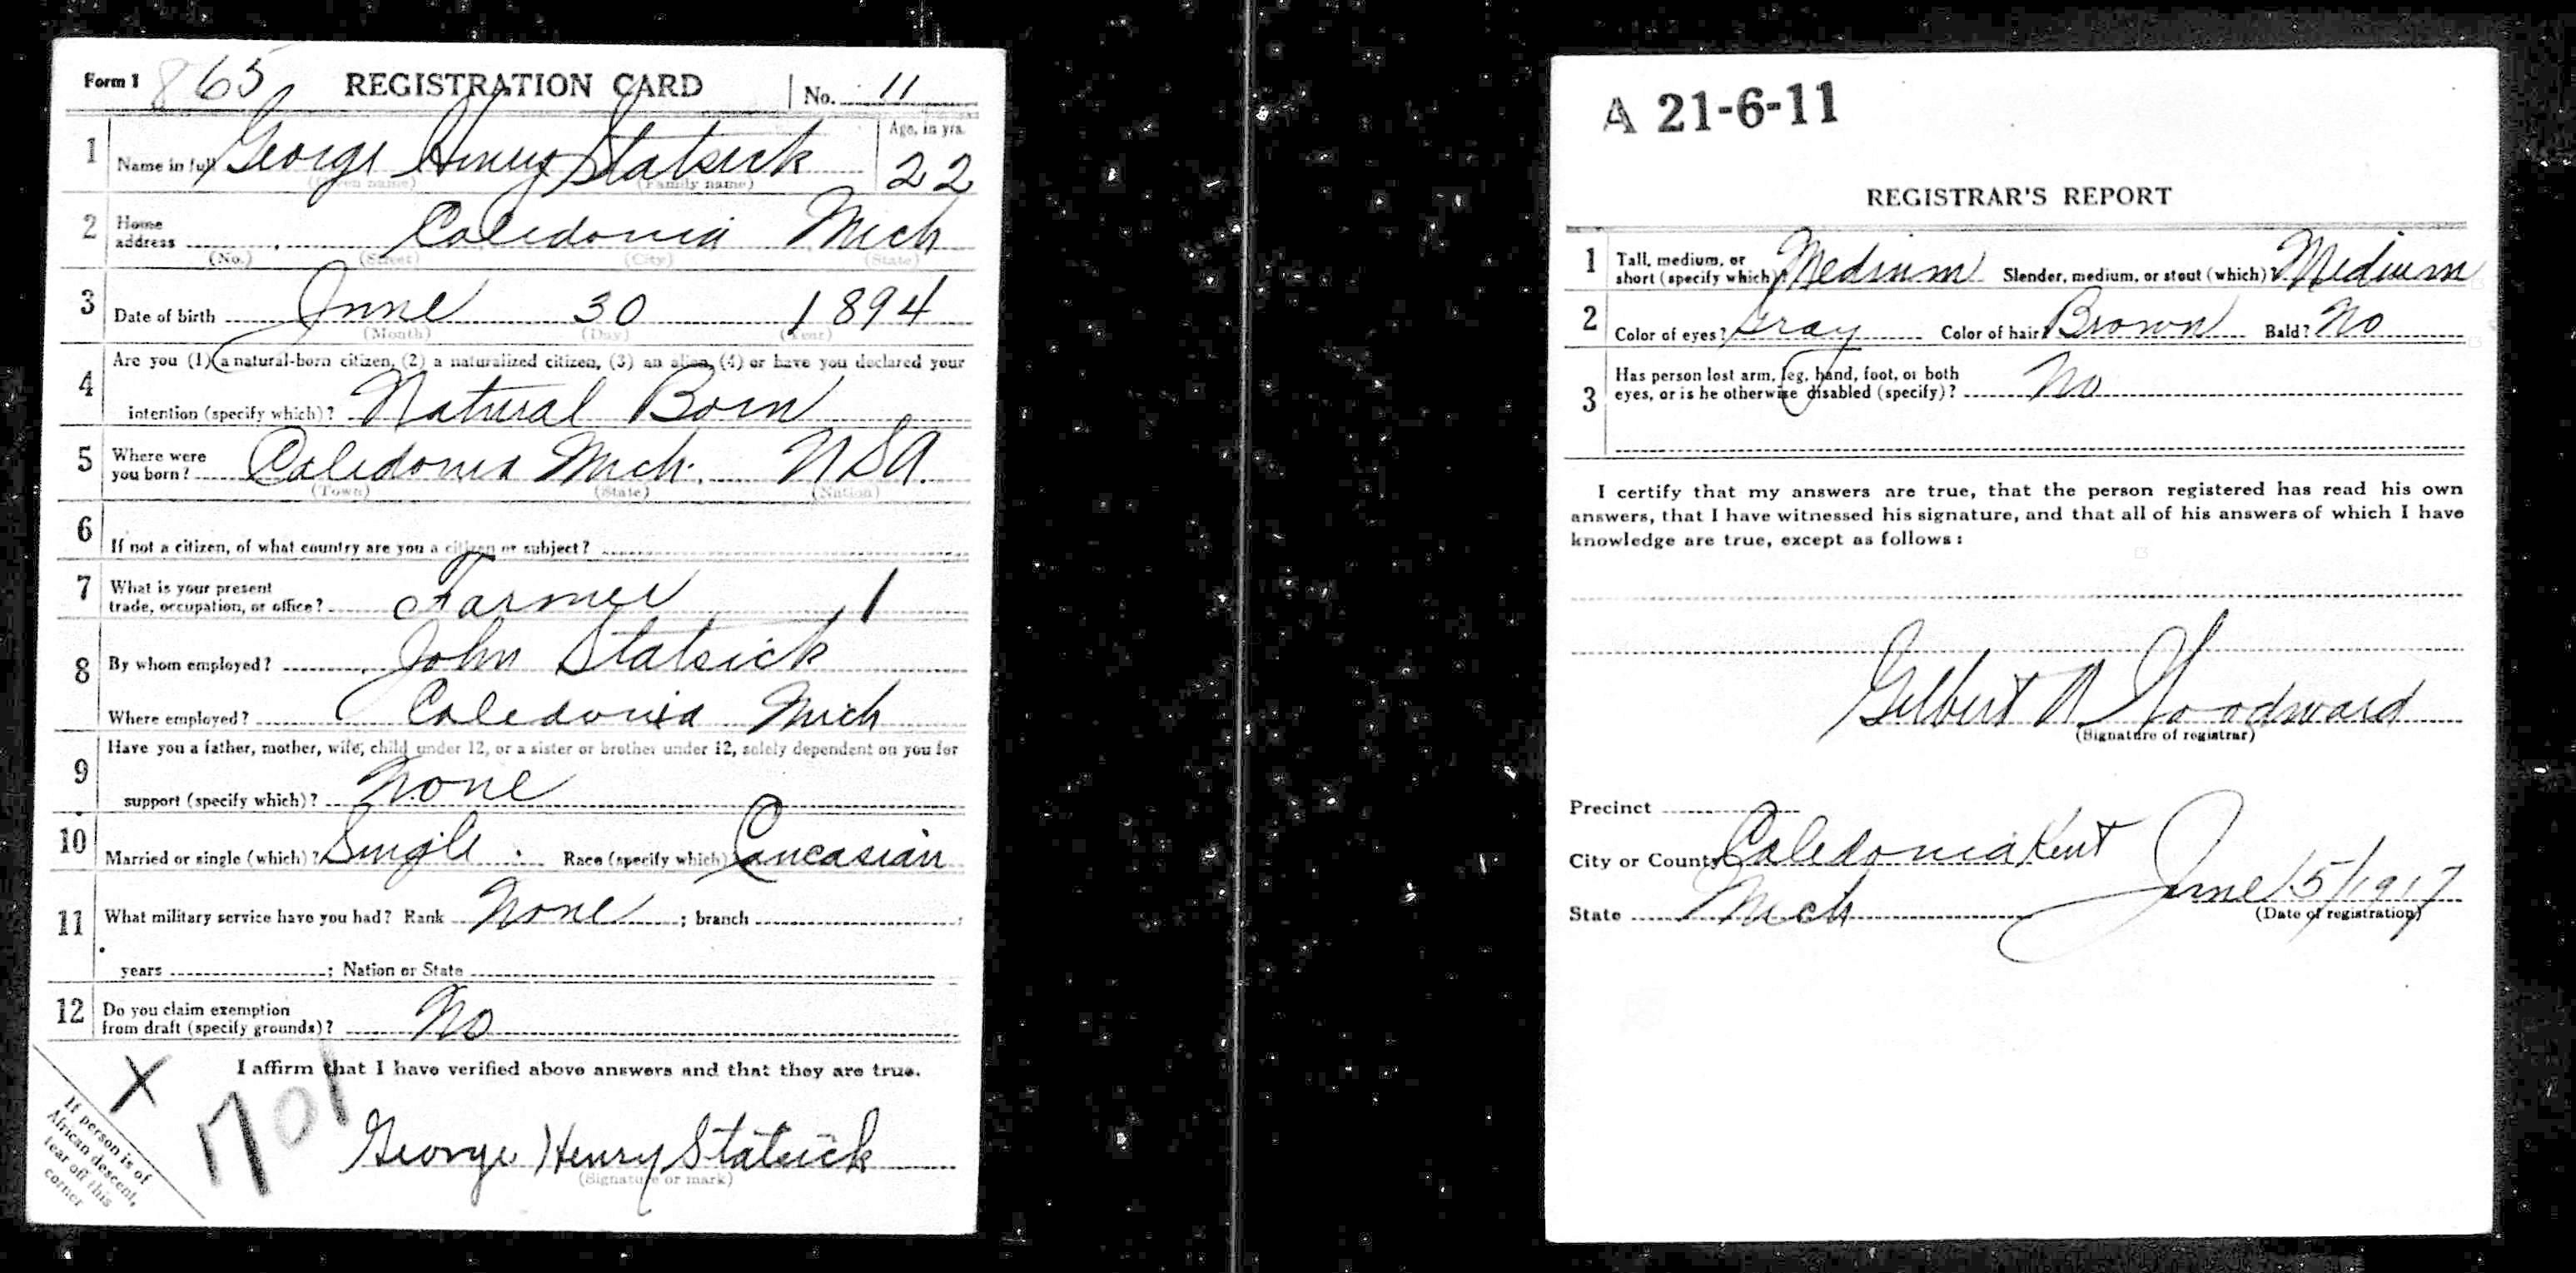 Form 1 865 REGISTRATION CARD No. 11
1 Name in full George Henry Statsick Age, in yrs. 22
(Given name) (Family name)
2 Home address Caledonia Mich
(No.) (Street) (City) (State)
3 Date of birth June 30 1894
(Month) (Day) (Year)
4 Are you (1) a natural-born citizen, (2) a naturalized citizen, (3) an alien, (4) or have you declared your
intention (specify which)? Natural Born
5 Where were you born? Caledonia Mich. USA.
(Town) (State) (Nation)
6 If not a citizen, of what country are you a citizen or subject?
7 What is your present trade, occupation, or office? Farmer 1
8 By whom employed? John Statsick
Where employed? Caledonia Mich
9 Have you a father, mother, wife, child under 12, or a sister or brother under 12, solely dependent on you for
support (specify which)? None
10 Married or single (which)? Single. Race (specify which)? Caucasian
11 What military service have you had? Rank None ; branch
years ; Nation or State
12 Do you claim exemption from draft (specify grounds)? No
I affirm that I have verified above answers and that they are true.
X
1701
George Henry Statsick
(Signature or mark)
If person is of
African descent,
tear off this
corner
A 21-6-11
REGISTRAR'S REPORT
1 Tall, medium, or short (specify which)? Medium Slender, medium, or stout (which)? Medium
2 Color of eyes? Gray Color of hair? Brown Bald? No
3 Has person lost arm, leg, hand, foot, or both
eyes, or is he otherwise disabled (specify)? No
I certify that my answers are true, that the person registered has read his own
answers, that I have witnessed his signature, and that all of his answers of which I have
knowledge are true, except as follows:
Gilbert Woodward
(Signature of registrar)
Precinct
City or County Caledonia Kent
State Mich June 5/1917
(Date of registration)